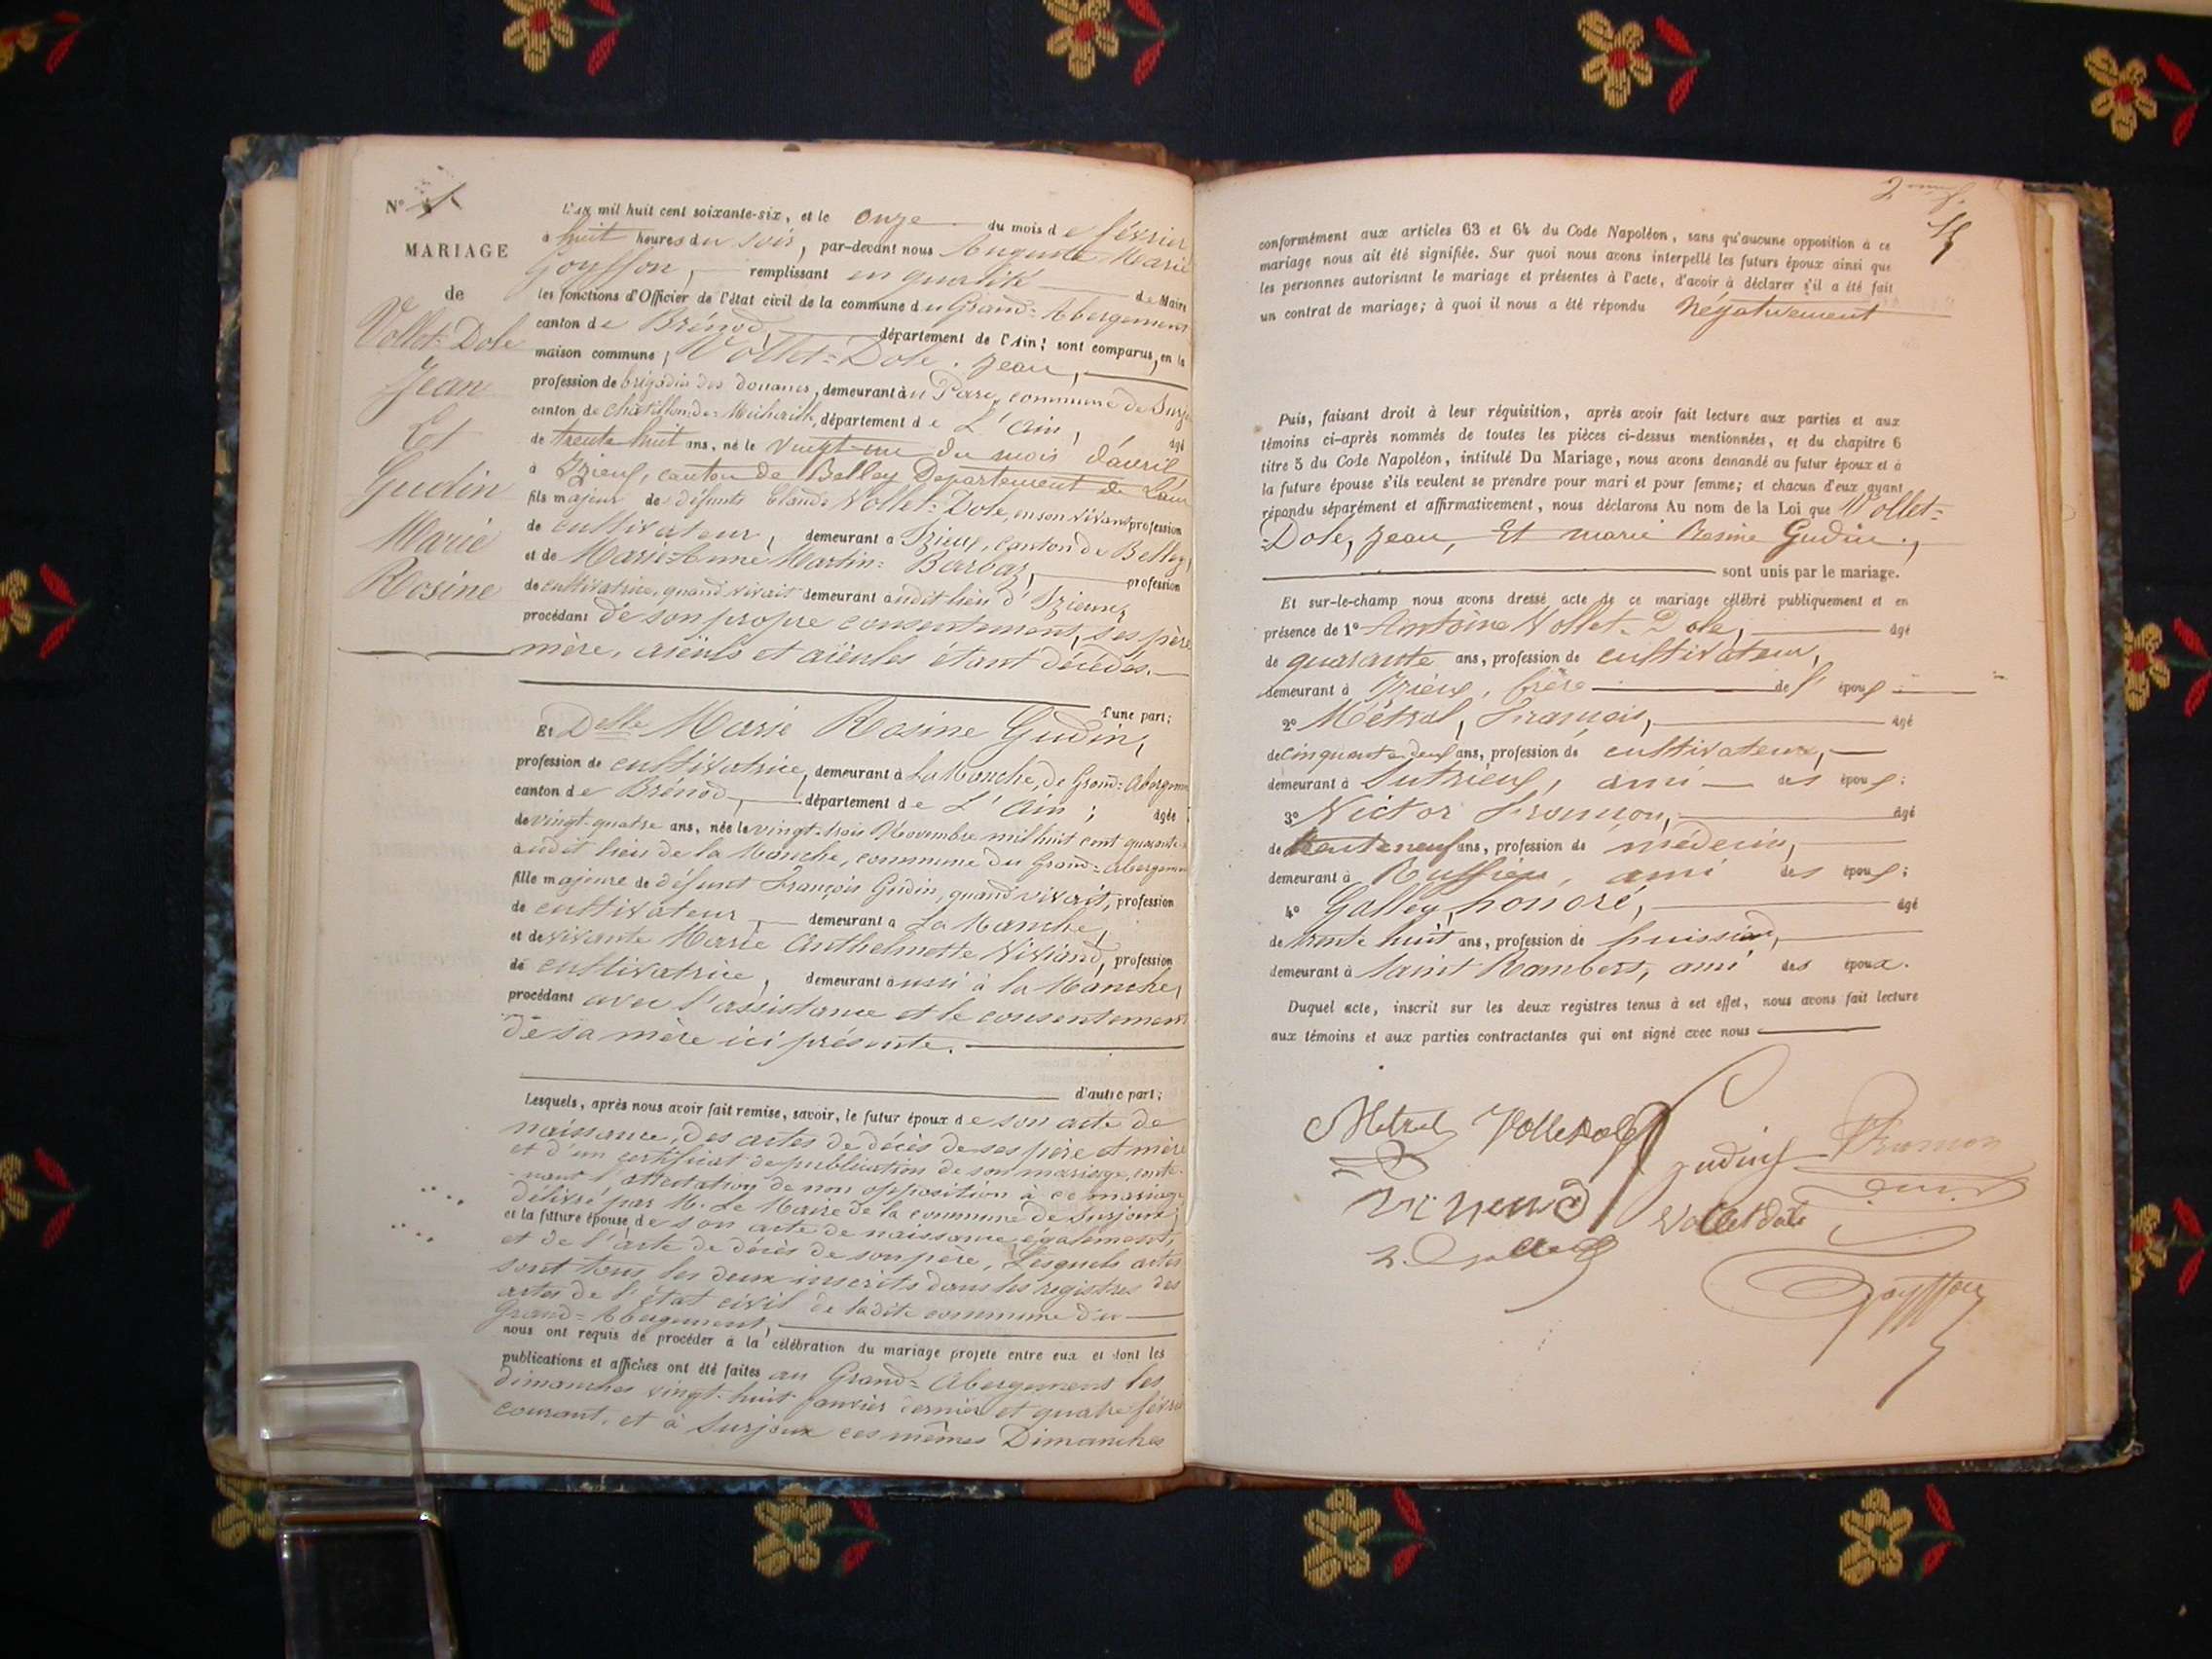 N°
MARIAGE
de
Vollet=Dole
Jean
Et
Gudin
Marie
Rosine
L'an mil huit cent soixante-six, et le onze du mois de février
à huit heures du soir, par-devant nous Auguste Marie
Goyffon, remplissant en qualité de Maire
les fonctions d'Officier de l'état civil de la commune du Grand=Abergement
canton de Brénod, département de l'Ain; sont comparus, en la
maison commune, Vollet=Dole, Jean,
profession de brigadier des douanes, demeurant au Parc, commune de Surjoux
canton de Châtillon de Michaille, département de L'Ain, âgé
de trente huit ans, né le vingt-un du mois d'avril
à Izieux, canton de Belley Département de L'ain
fils majeur de défunts Claude Vollet=Dole, en son vivant profession
de cultivateur, demeurant à Izieux, canton de Belley,
et de Marie=Anne Martin=Barbaz, profession
de cultivatrice, quand vivait demeurant audit lieu d'Izieux,
procédant de son propre consentement, ses père
mère, aïeuls et aïeules étant décédés.
d'une part;
Et Delle Marie Rosine Gudin,
profession de cultivatrice, demeurant à La Manche, de Grand=Abergement
canton de Brénod, département de L'Ain; âgée
de vingt-quatre ans, née le vingt-trois Novembre mil huit cent quarante-
audit lieu de la Manche, commune du Grand=Abergement
fille majeure de défunt François Gudin, quand vivait, profession
de cultivateur, demeurant à La Manche,
et de vivante Marie Anthelmette Viviand, profession
de cultivatrice, demeurant aussi à la Manche,
procédant avec l'assistance et le consentement
de sa mère ici présente.
d'autre part;
Lesquels, après nous avoir fait remise, savoir, le futur époux de son acte de
naissance, des actes de décès de ses père et mère
et d'un certificat de publication de son mariage, conte-
-nant l'attestation de non opposition à ce mariage
délivré par M. Le Maire de la commune de Surjoux;
et la future épouse, de son acte de naissance également,
et de l'acte de décès de son père, Lesquels actes
sont tous les deux inscrits dans les registres des
actes de l'état civil de ladite commune du
Grand=Abergement,
nous ont requis de procéder à la célébration du mariage projeté entre eux et dont les
publications et affiches ont été faites au Grand=Abergement les
dimanches vingt-huit janvier dernier et quatre février
courant, et à Surjoux ces mêmes Dimanches
conformément aux articles 63 et 64 du Code Napoléon, sans qu'aucune opposition à ce
mariage nous ait été signifiée. Sur quoi nous avons interpellé les futurs époux ainsi que
les personnes autorisant le mariage et présentes à l'acte, d'avoir à déclarer s'il a été fait
un contrat de mariage; à quoi il nous a été répondu Négativement
Puis, faisant droit à leur réquisition, après avoir fait lecture aux parties et aux
témoins ci-après nommés de toutes les pièces ci-dessus mentionnées, et du chapitre 6
titre 5 du Code Napoléon, intitulé Du Mariage, nous avons demandé au futur époux et à
la future épouse s'ils veulent se prendre pour mari et pour femme; et chacun d'eux ayant
répondu séparément et affirmativement, nous déclarons Au nom de la Loi que Vollet=
=Dole, Jean, Et marie Rosine Gudin,
sont unis par le mariage.
Et sur-le-champ nous avons dressé acte de ce mariage célébré publiquement et en
présence de 1° Antoine Vollet-Dole, âgé
de quarante ans, profession de cultivateur,
demeurant à Izieux, frère de l'époux
2° Métral, François, âgé
de cinquante deux ans, profession de cultivateur,
demeurant à Sutrieux, ami des époux;
3° Victor Fromon, âgé
de trente neuf ans, profession de médecin,
demeurant à Ruffieu, ami des époux;
4° Galley, honoré, âgé
de trente huit ans, profession de huissier,
demeurant à Saint Rambert, ami des époux.
Duquel acte, inscrit sur les deux registres tenus à cet effet, nous avons fait lecture
aux témoins et aux parties contractantes qui ont signé avec nous
Metral Volletdole
Gudin Fromon
Volletdole
Goyffon